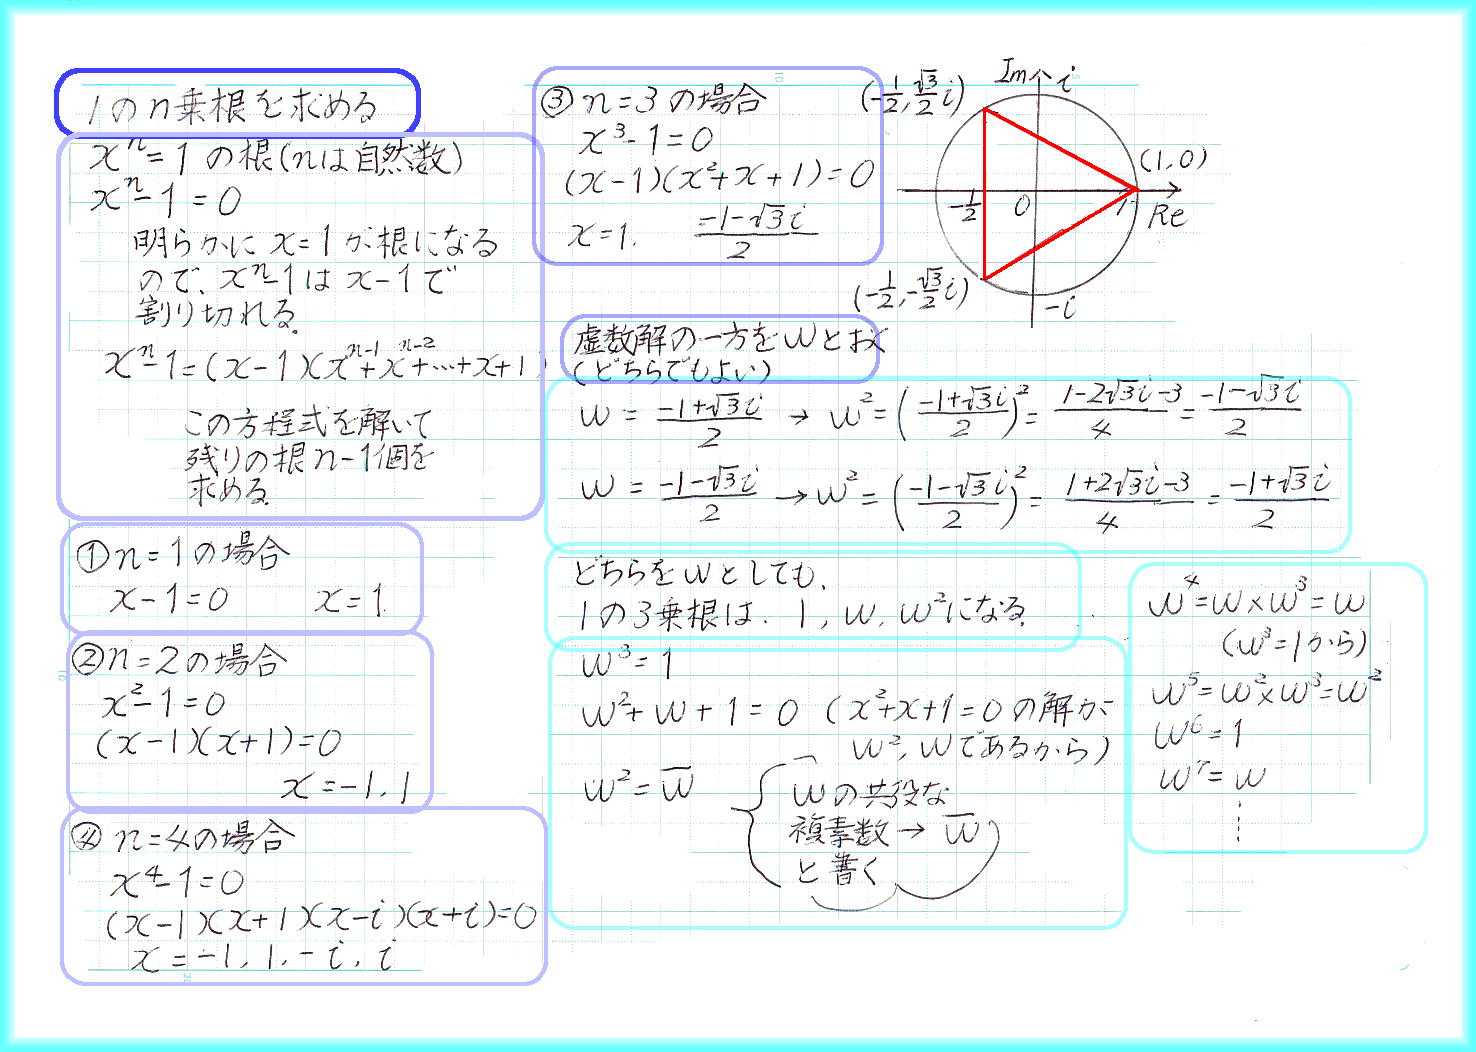 1のn乗根を求める
xⁿ=1 の根(nは自然数)
xⁿ-1=0
明らかに x=1 が根になる
ので、xⁿ-1は x-1で
割り切れる。
xⁿ-1=(x-1)(xⁿ⁻¹+xⁿ⁻²+…+x+1)
この方程式を解いて
残りの根n-1個を
求める。
①n=1の場合
x-1=0 x=1
②n=2の場合
x²-1=0
(x-1)(x+1)=0
x=-1,1
④ n=4の場合
x⁴-1=0
(x-1)(x+1)(x-i)(x+i)=0
x=-1, 1, -i, i
③ n=3の場合
x³-1=0
(x-1)(x²+x+1)=0
x=1. (-1-√3i)/2
Im
i
(-1/2, √3/2 i)
(1,0)
-1/2
0
1
Re
(-1/2, -√3/2 i)
-i
虚数解の一方をωとおく
(どちらでもよい)
ω = (-1+√3i)/2 → ω²=((-1+√3i)/2)²= (1-2√3i-3)/4 = (-1-√3i)/2
ω = (-1-√3i)/2 → ω²=((-1-√3i)/2)²= (1+2√3i-3)/4 = (-1+√3i)/2
どちらをωとしても、
1の3乗根は、1, ω, ω²になる
ω³=1
ω²+ω+1=0 (x²+x+1=0の解が
ω², ωであるから)
ω²=ω̅
ωの共役な
複素数→ ω̅
と書く
ω⁴=ω×ω³=ω
(ω³=1から)
ω⁵=ω²×ω³=ω²
ω⁶=1
ω⁷=ω
⋮